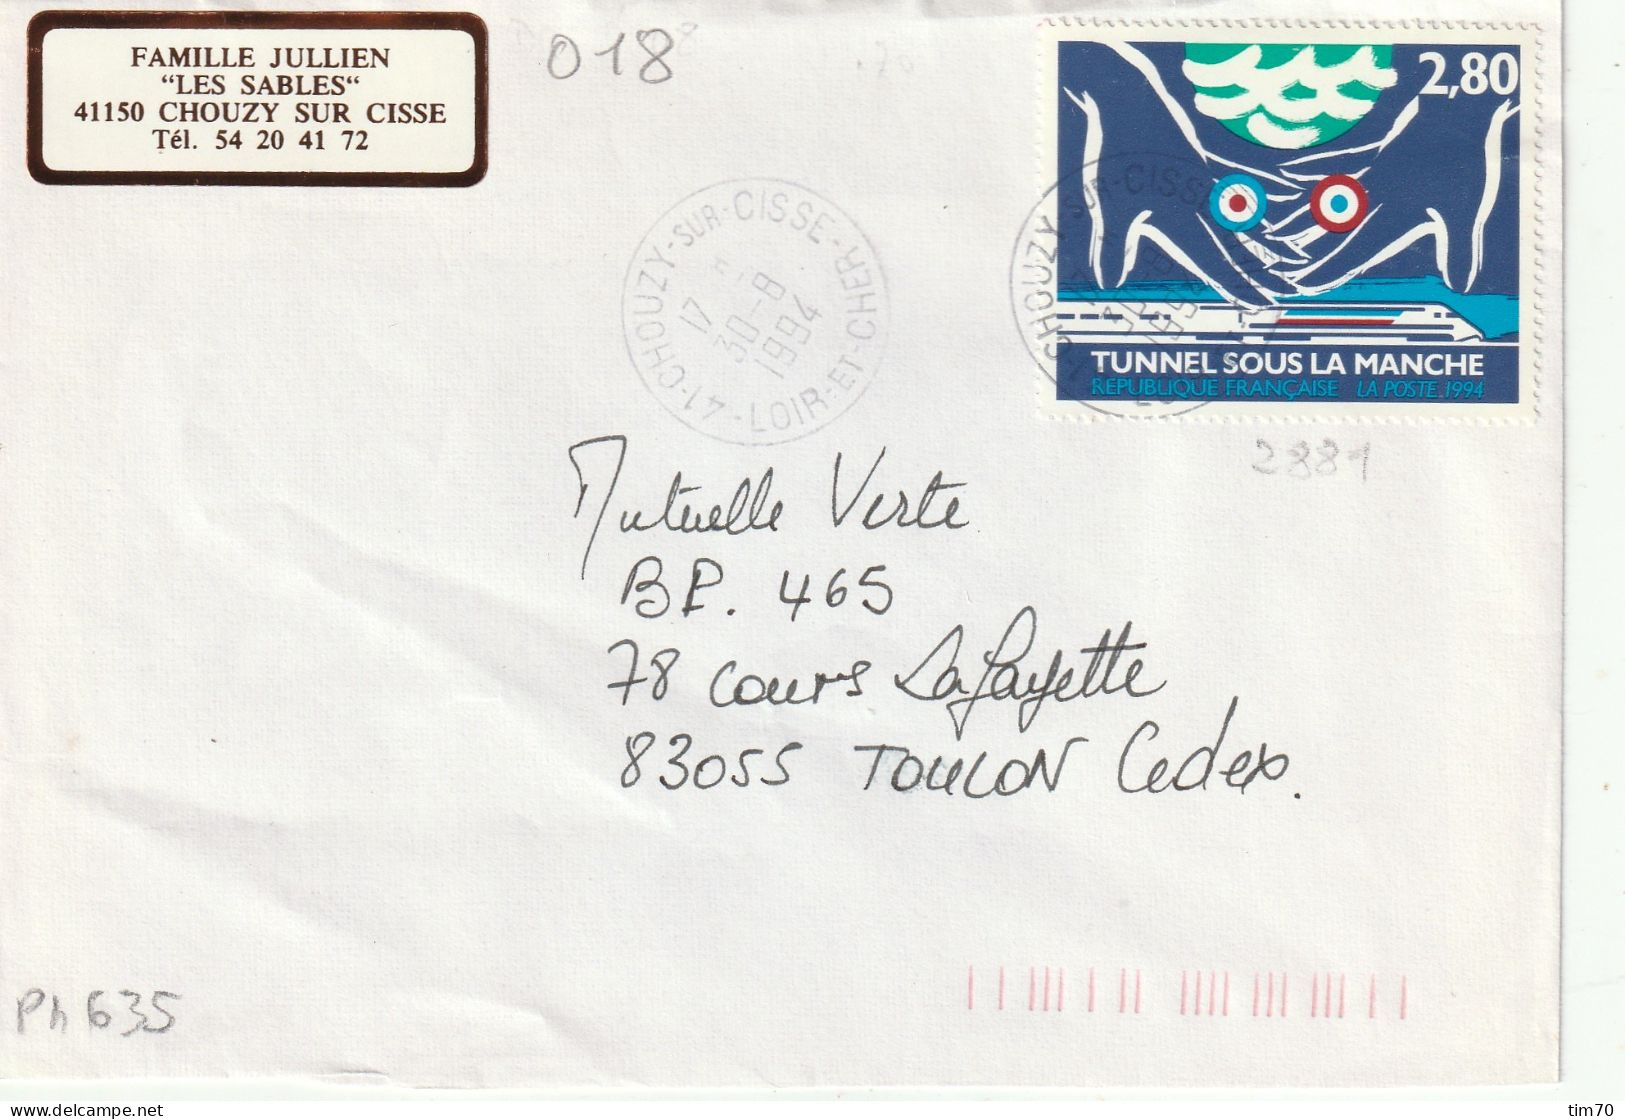 FAMILLE JULLIEN
“LES SABLES“
41150 CHOUZY SUR CISSE
Tél. 54 20 41 72
018
2,80
TUNNEL SOUS LA MANCHE
RÉPUBLIQUE FRANÇAISE LA POSTE 1994
41-CHOUZY-SUR-CISSE-LOIR-ET-CHER
17 H
30-8
1994
CHOUZY-SUR-CISSE
2881
Mutuelle Verte
BP. 465
78 cours Lafayette
83055 TOULON Cedex.
Ph 635
tim70